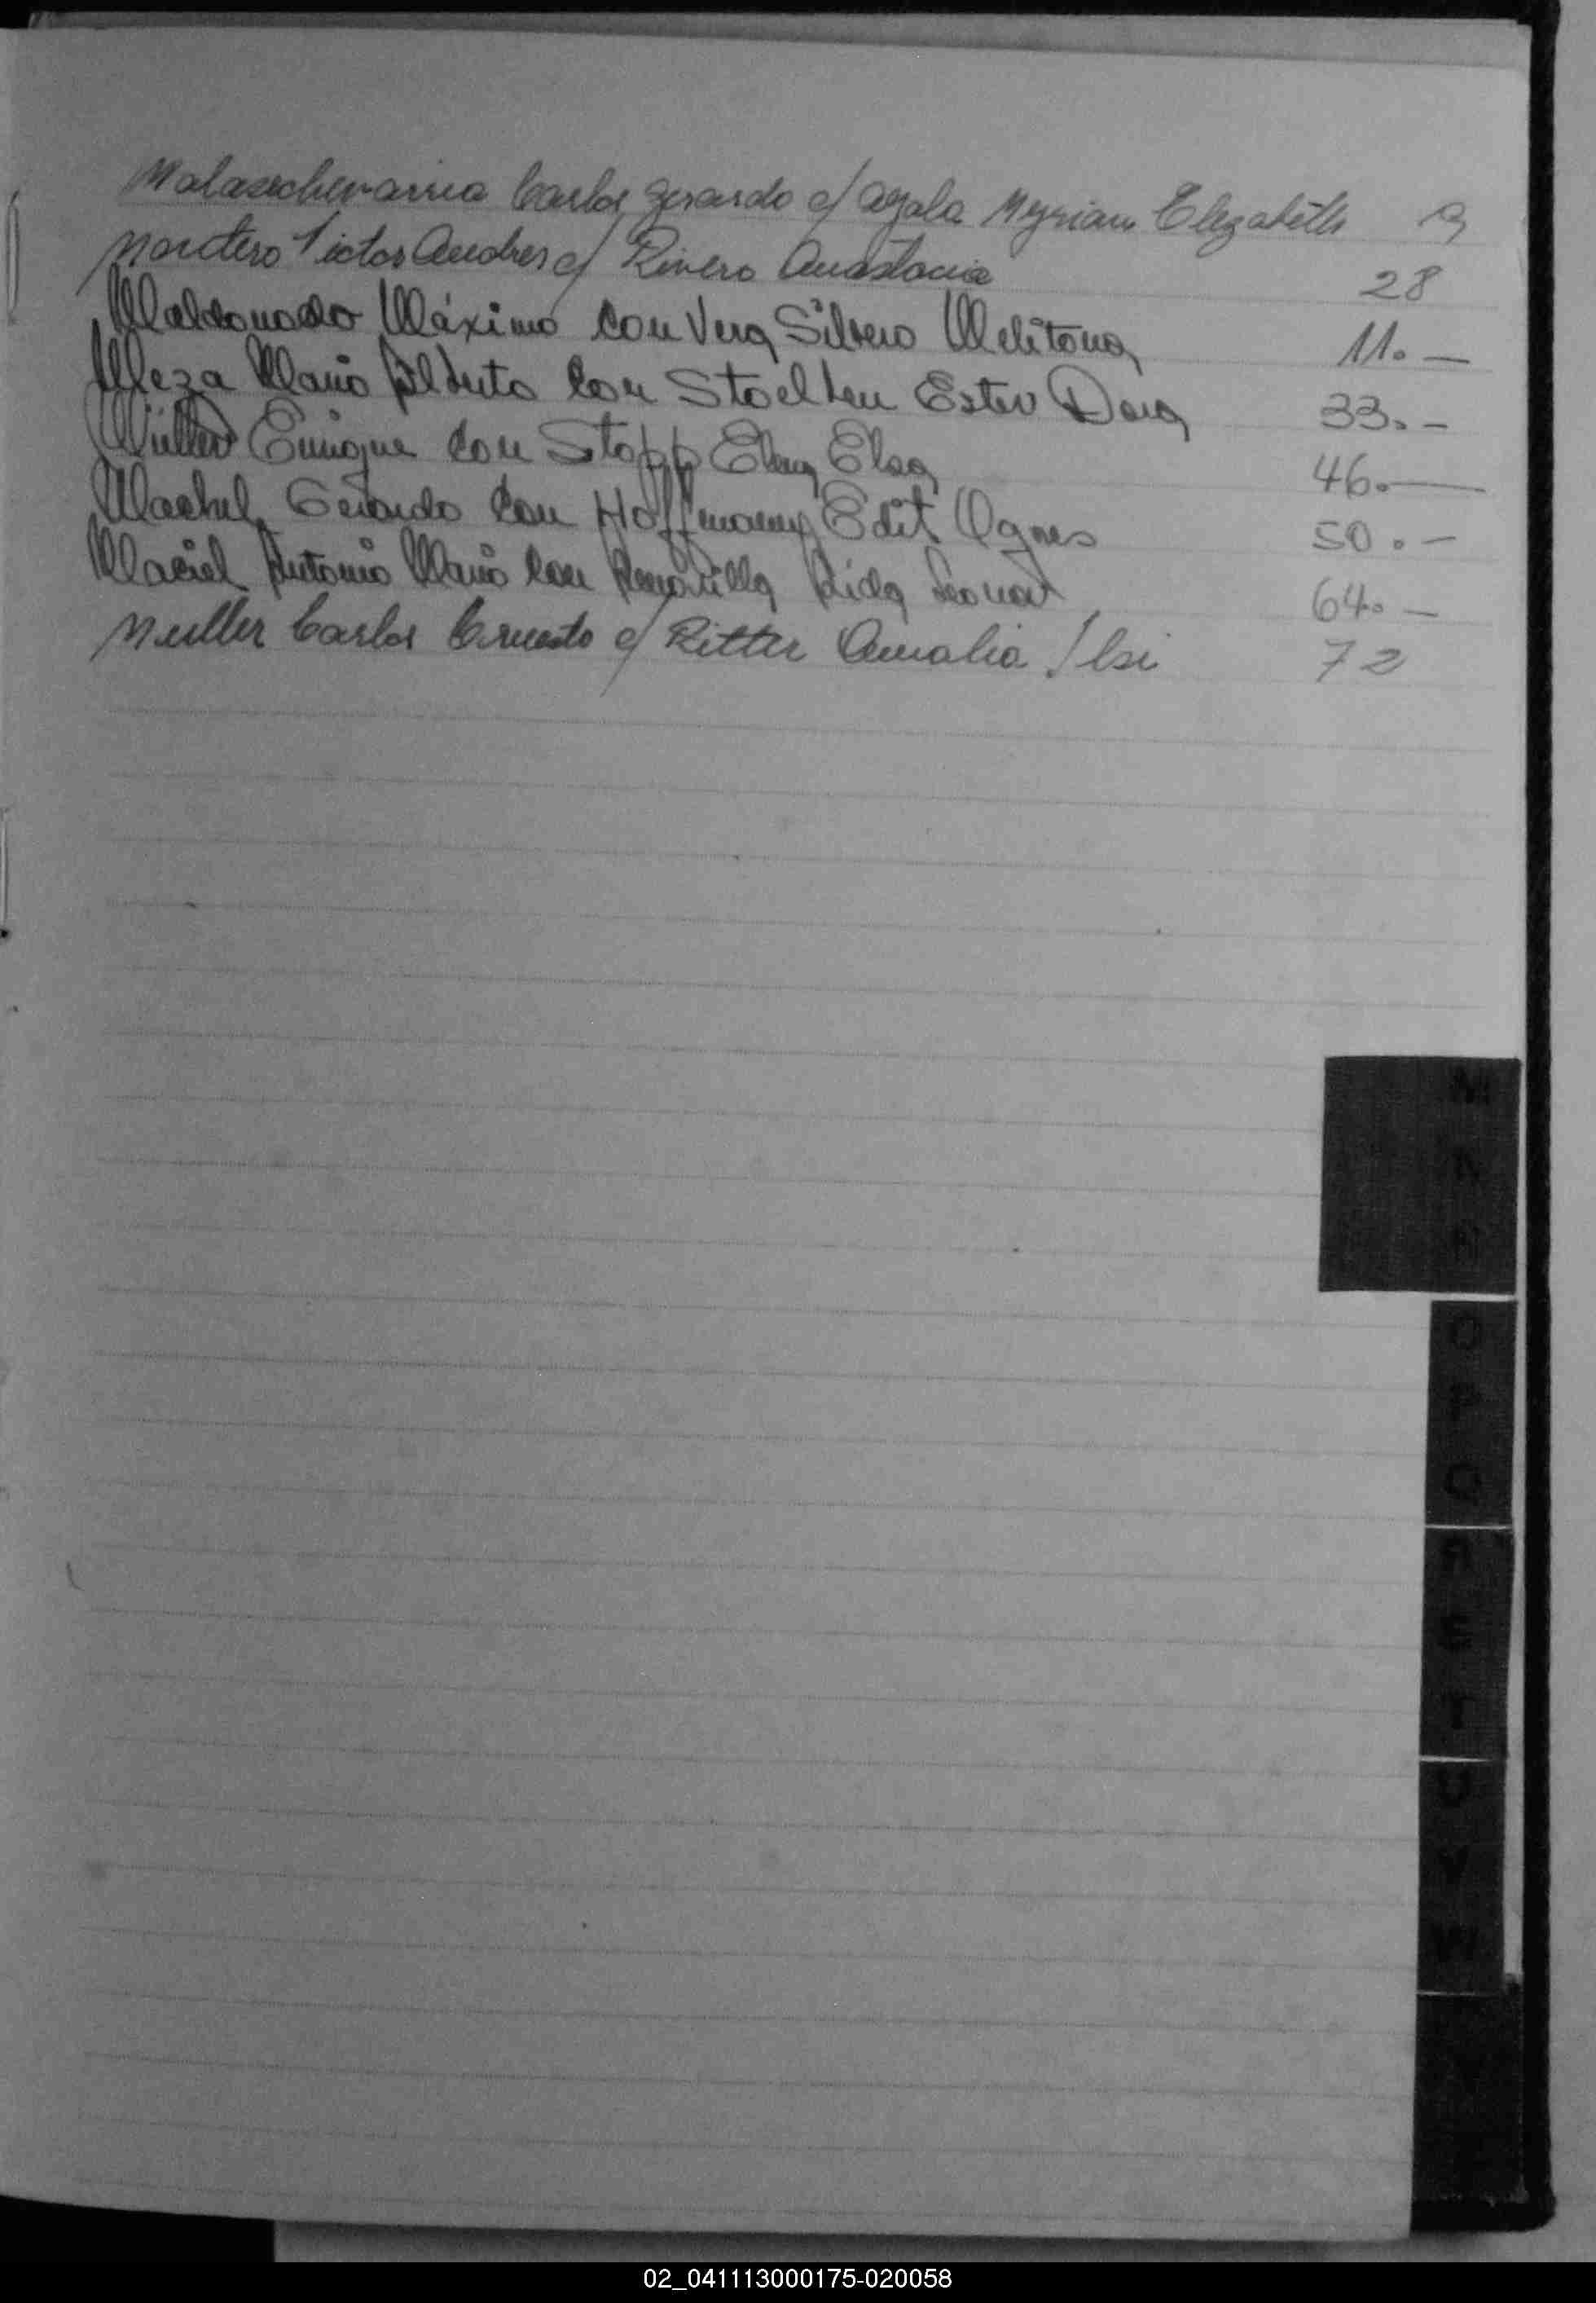 Malasechevarria Carlos Gerardo c/ Ayala Myriam Elizabeth 9
Montero Victor Andres c/ Rivero Anastacia 28
Maldonado Máximo con Vera Silvero Melitona 11.-
Meza Mario Alberto con Stoelben Ester Dora 33.-
Müller Enrique con Stopp Elsa 46.-
Gerardo con Hoffmann Edit Agnes 50.-
Maciel Antonio Mario con Lida Leonor 64.-
Muller Carlos Ernesto c/ Ritter Amalia Ilsi 72
M
N
Ñ
O
P
Q
R
S
T
U
V
W
02_041113000175-020058